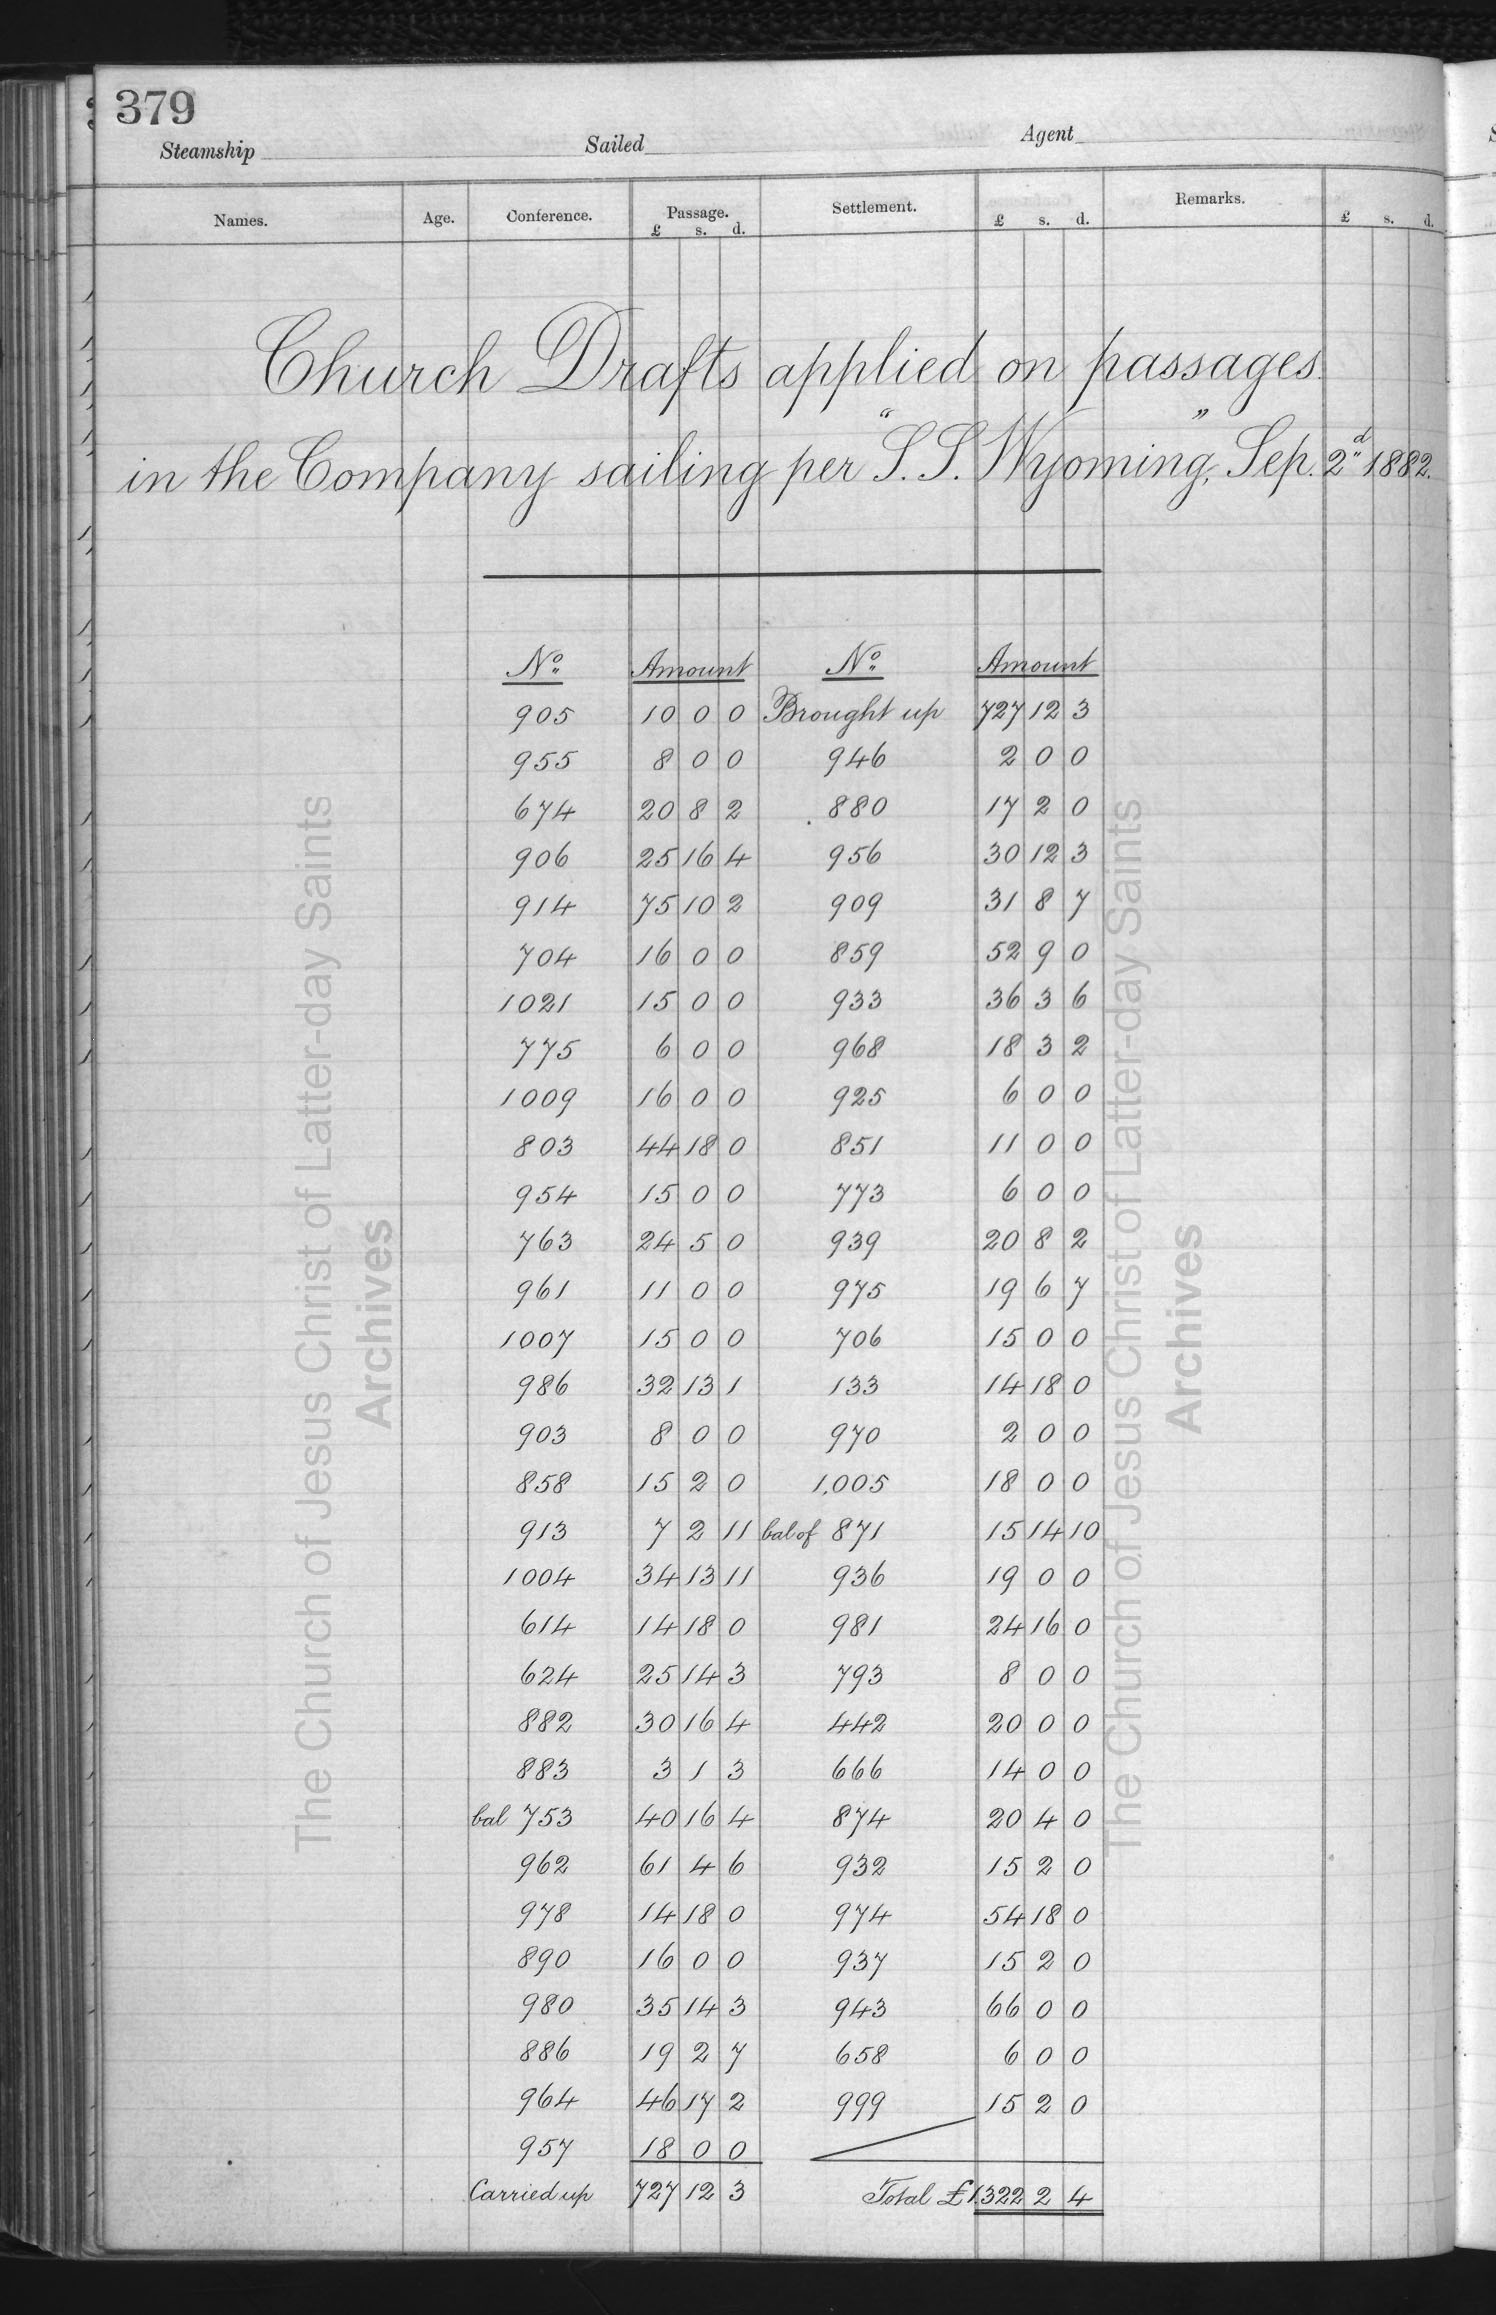 379
Steamship Sailed Agent
Names. Age. Conference. Passage. Settlement. Remarks.
£ s. d. £ s. d. £ s. d.
Church Drafts applied on passages.
in the Company sailing per "S.S. Wyoming," Sep. 2d 1882.
No. Amount No. Amount
905 10 0 0 Brought up 727 12 3
955 8 0 0 946 2 0 0
674 20 8 2 880 17 2 0
906 25 16 4 956 30 12 3
914 75 10 2 909 31 8 7
704 16 0 0 859 52 9 0
1021 15 0 0 933 36 3 6
775 6 0 0 968 18 3 2
1009 16 0 0 925 6 0 0
803 44 18 0 851 11 0 0
954 15 0 0 773 6 0 0
763 24 5 0 939 20 8 2
961 11 0 0 975 19 6 7
1007 15 0 0 706 15 0 0
986 32 13 1 133 14 18 0
903 8 0 0 970 2 0 0
858 15 2 0 1,005 18 0 0
913 7 2 11 bal of 871 15 14 10
1004 34 13 11 936 19 0 0
614 14 18 0 981 24 16 0
624 25 14 3 793 8 0 0
882 30 16 4 442 20 0 0
883 3 1 3 666 14 0 0
bal 753 40 16 4 874 20 4 0
962 61 4 6 932 15 2 0
978 14 18 0 974 54 18 0
890 16 0 0 937 15 2 0
980 35 14 3 943 66 0 0
886 19 2 7 658 6 0 0
964 46 17 2 999 15 2 0
957 18 0 0
Carried up 727 12 3 Total £1322 2 4
The Church of Jesus Christ of Latter-day Saints
Archives
The Church of Jesus Christ of Latter-day Saints
Archives